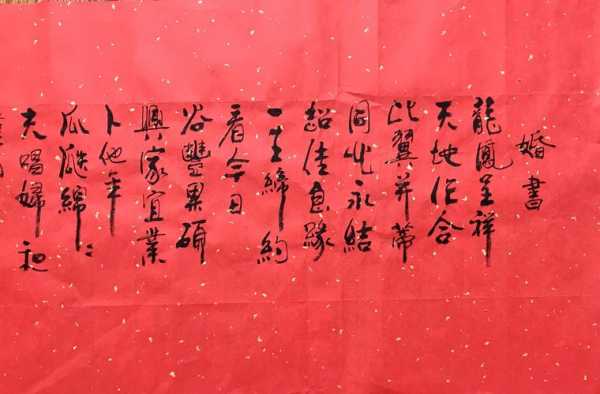 婚書
龍鳳呈祥
天地作合
比翼并蒂
同心永結
佳良緣
一堂締約
看今日
谷豐果碩
興家宜業
卜他年
瓜瓞綿〻
夫唱婦和